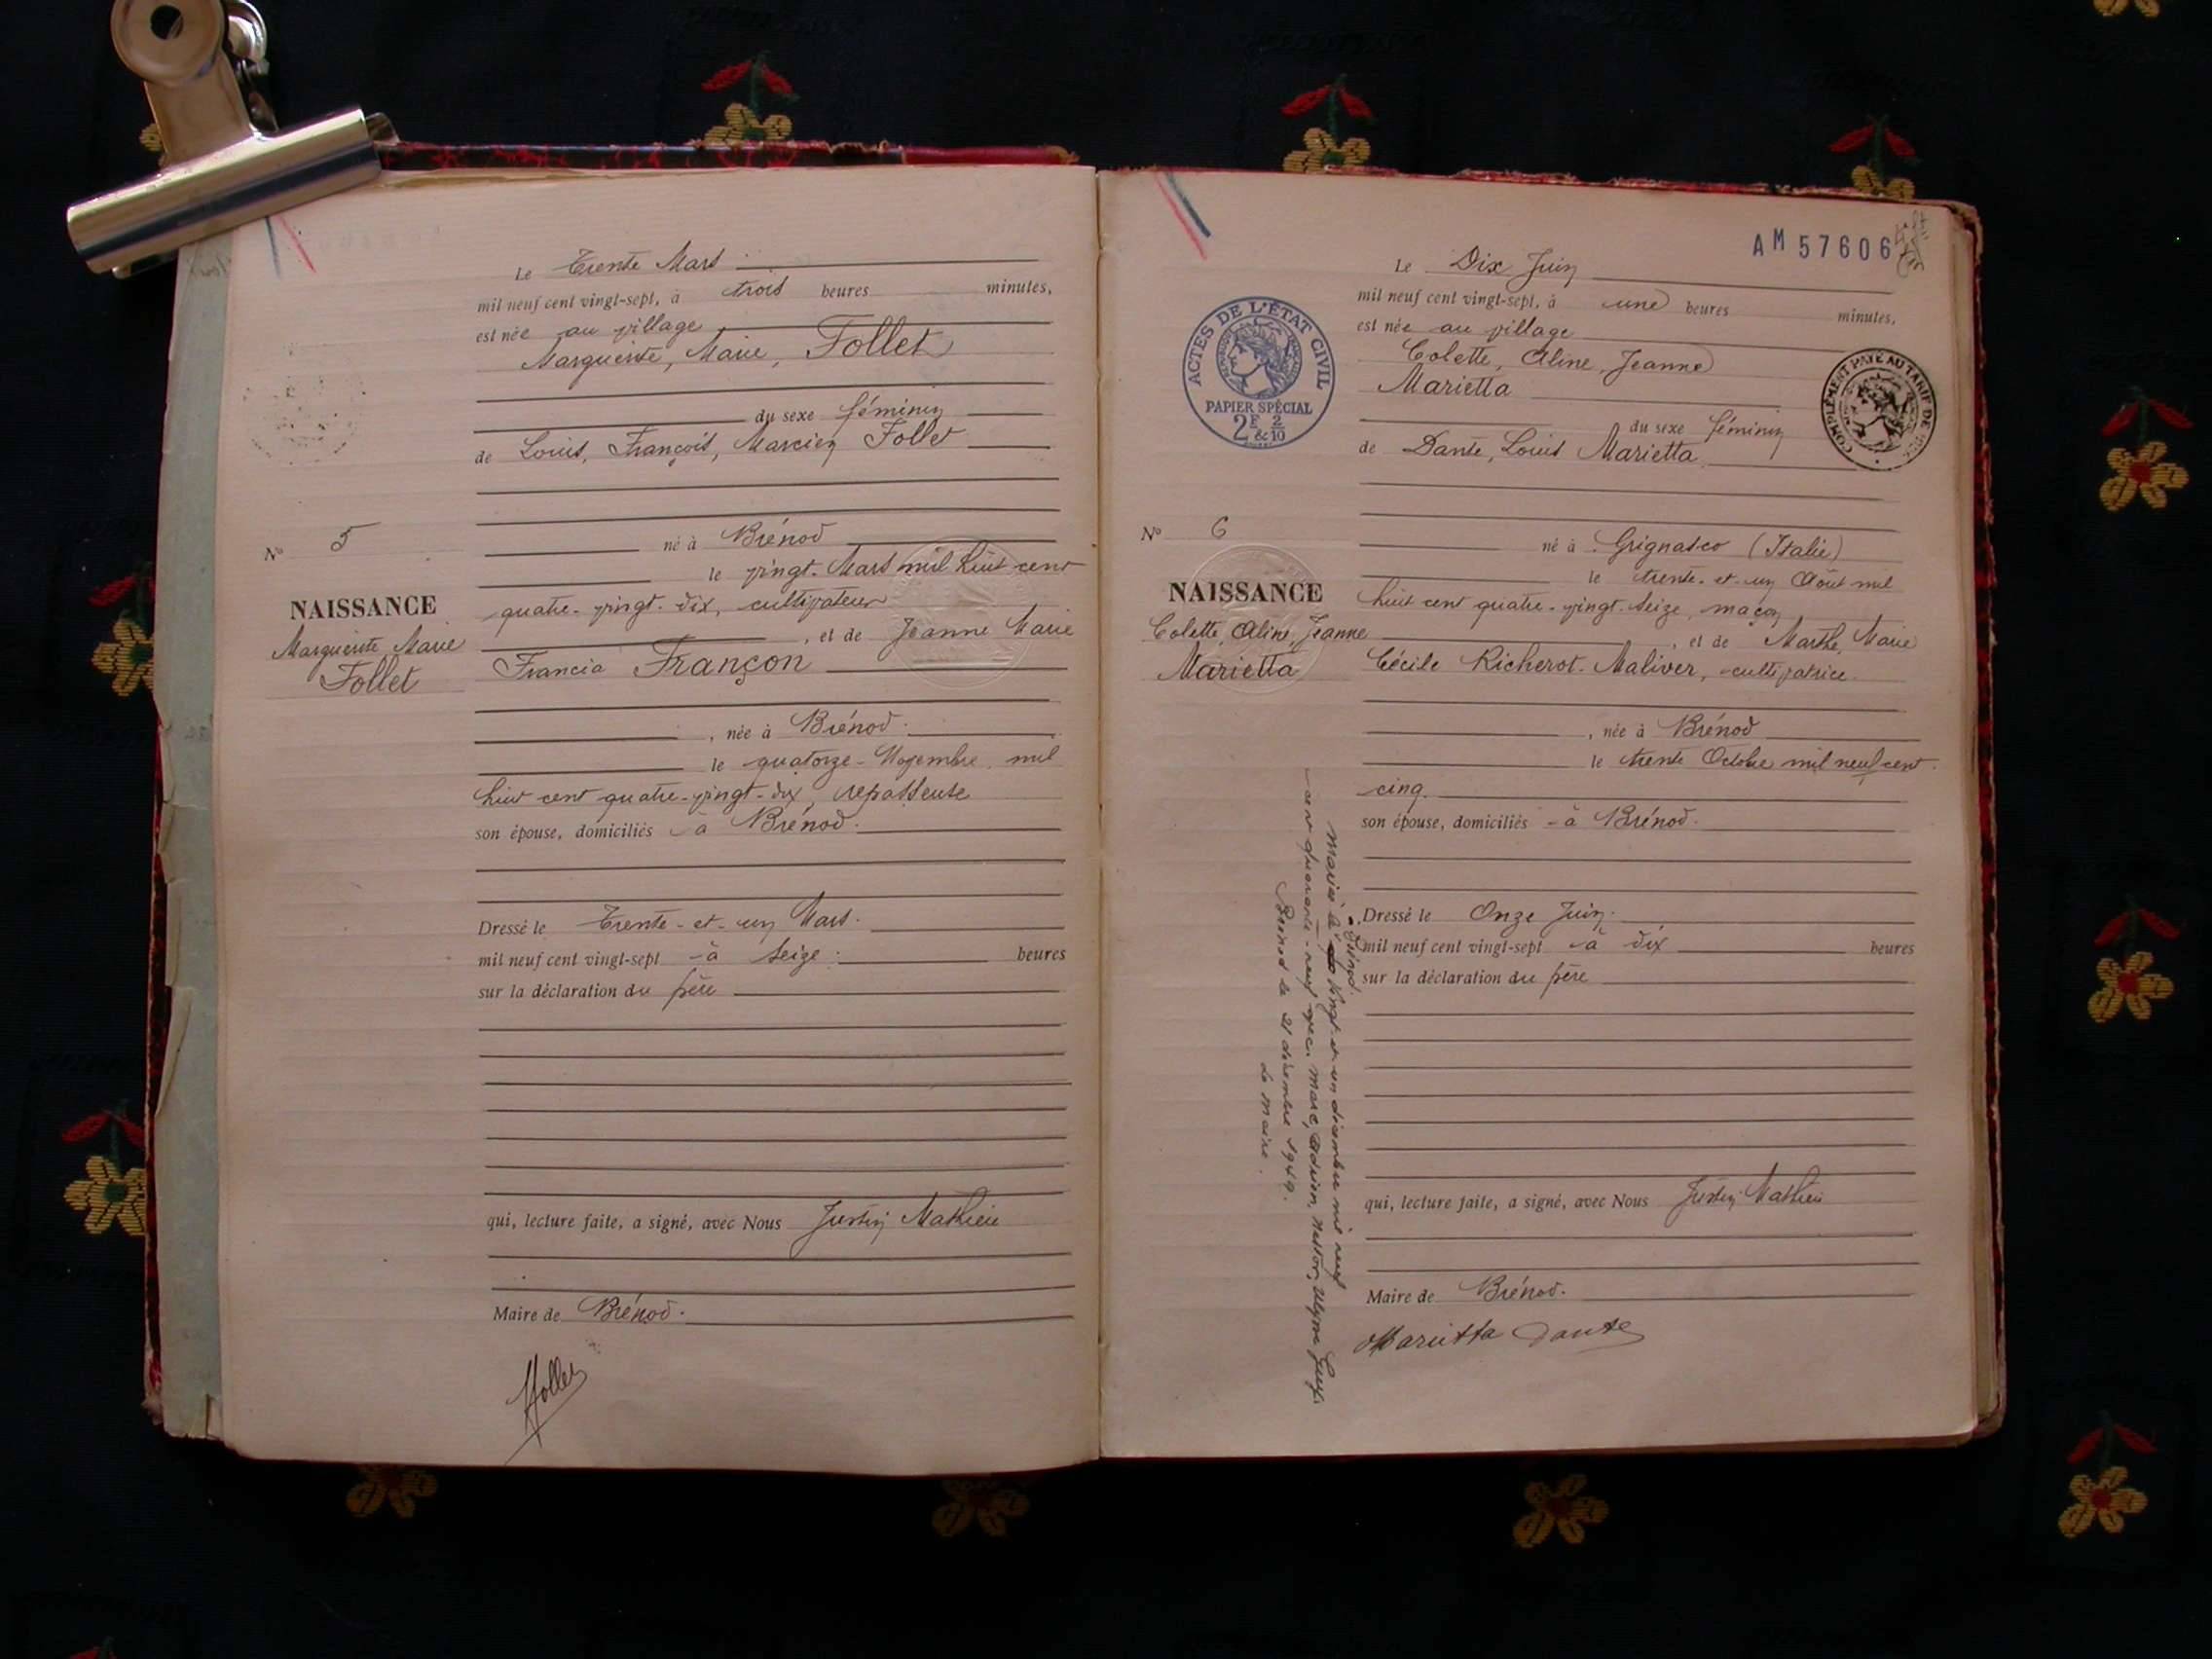 Le Trente Mars
mil neuf cent vingt-sept, à trois heures minutes,
est née au village
Marguerite, Marie, Follet
du sexe féminin
de Louis, François, Marcien Follet
né à Brénod
le vingt Mars mil huit cent
quatre-vingt-dix, cultivateur
, et de Jeanne Marie
Francia Françon
, née à Brénod
le quatorze Novembre mil
huit cent quatre-vingt-dix, repasseuse
son épouse, domiciliés à Brénod.
Dressé le Trente-et-un Mars.
mil neuf cent vingt-sept à seize heures
sur la déclaration du père
qui, lecture faite, a signé, avec Nous Justin Mathieu
Maire de Brénod.
Follet
No 5
NAISSANCE
Marguerite Marie
Follet
AM 57606
Le Dix Juin
mil neuf cent vingt-sept, à une heures minutes,
est née au village
Colette, Aline, Jeanne
Marietta
du sexe féminin
de Dante, Louis Marietta
né à Grignasco (Italie)
le trente-et-un Août mil
huit cent quatre-vingt-seize, maçon
, et de Marthe, Marie
Cécile Richerot-Maliver, cultivatrice.
, née à Brénod
le trente Octobre mil neuf cent
cinq.
son épouse, domiciliés à Brénod.
Dressé le Onze Juin.
mil neuf cent vingt-sept à dix heures
sur la déclaration du père
qui, lecture faite, a signé, avec Nous Justin Mathieu
Maire de Brénod.
Marietta Dante
ACTES DE L'ÉTAT CIVIL
PAPIER SPÉCIAL
2F & 2/10
COMPLÉMENT PAYÉ AU TARIF DE
No 6
NAISSANCE
Colette, Aline, Jeanne
Marietta
Mariée le vingt-et-un décembre mil neuf
cent quarante-neuf avec Marc, Adrien, Nestor,
Brénod le 21 décembre 1949.
Le maire.